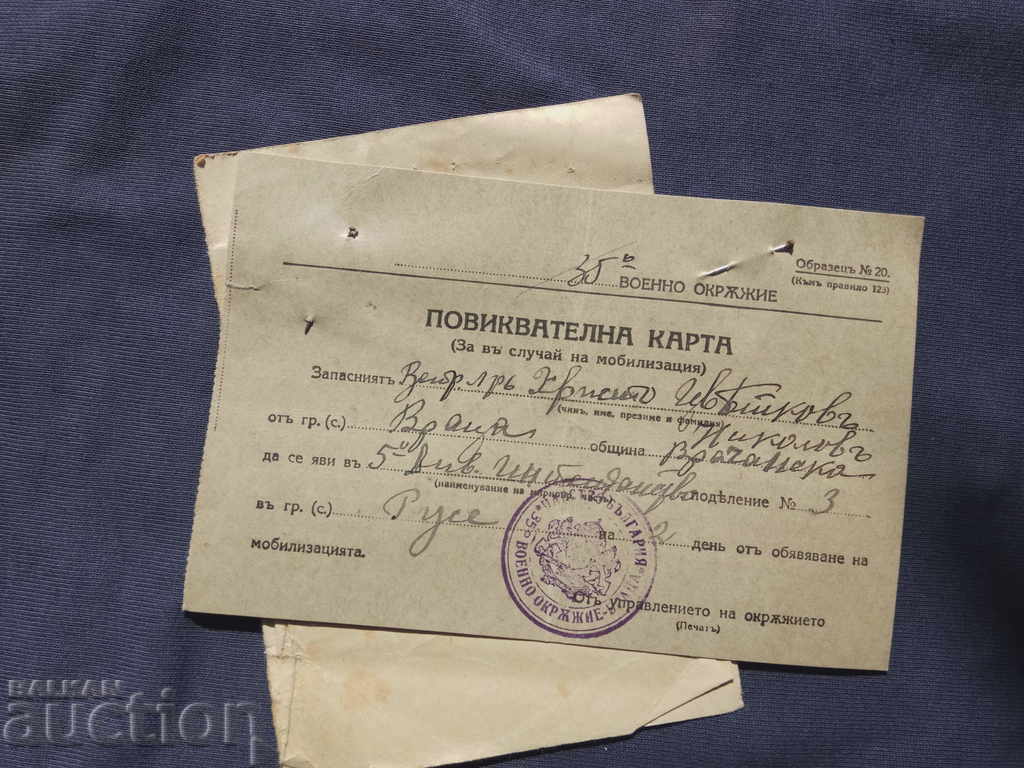 Образецъ № 20.
(Къмъ правило 123)
35о ВОЕННО ОКРѪЖИЕ
ПОВИКВАТЕЛНА КАРТА
(За въ случай на мобилизация)
Запасниятъ Ветр. лръ Христо Цвѣтковъ
(чинъ, име, презиме и фамилия) Николовъ
отъ гр. (с.) Враца община Врачанска
да се яви въ 5о Див. Интендантство подѣление № 3
(наименувание на мирновр. часть)
въ гр. (с.) Русе на 2 день отъ обявяване на
мобилизацията.
Отъ Управлението на окрѫжието
(Печатъ)
БЪЛГАРИЯ * 35о ВОЕННО ОКРѪЖИЕ - ВРАЦА
BALKAN
auction